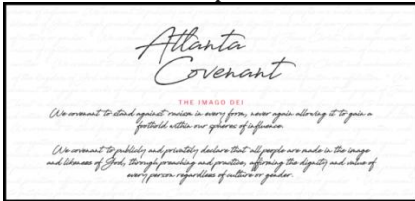 Atlanta
Covenant
THE IMAGO DEI
We covenant to stand against racism in every form, never again allowing it to gain a
foothold within our spheres of influence.
We covenant to publicly and privately declare that all people are made in the image
and likeness of God, through preaching and practice, affirming the dignity and value of
every person regardless of culture or gender.